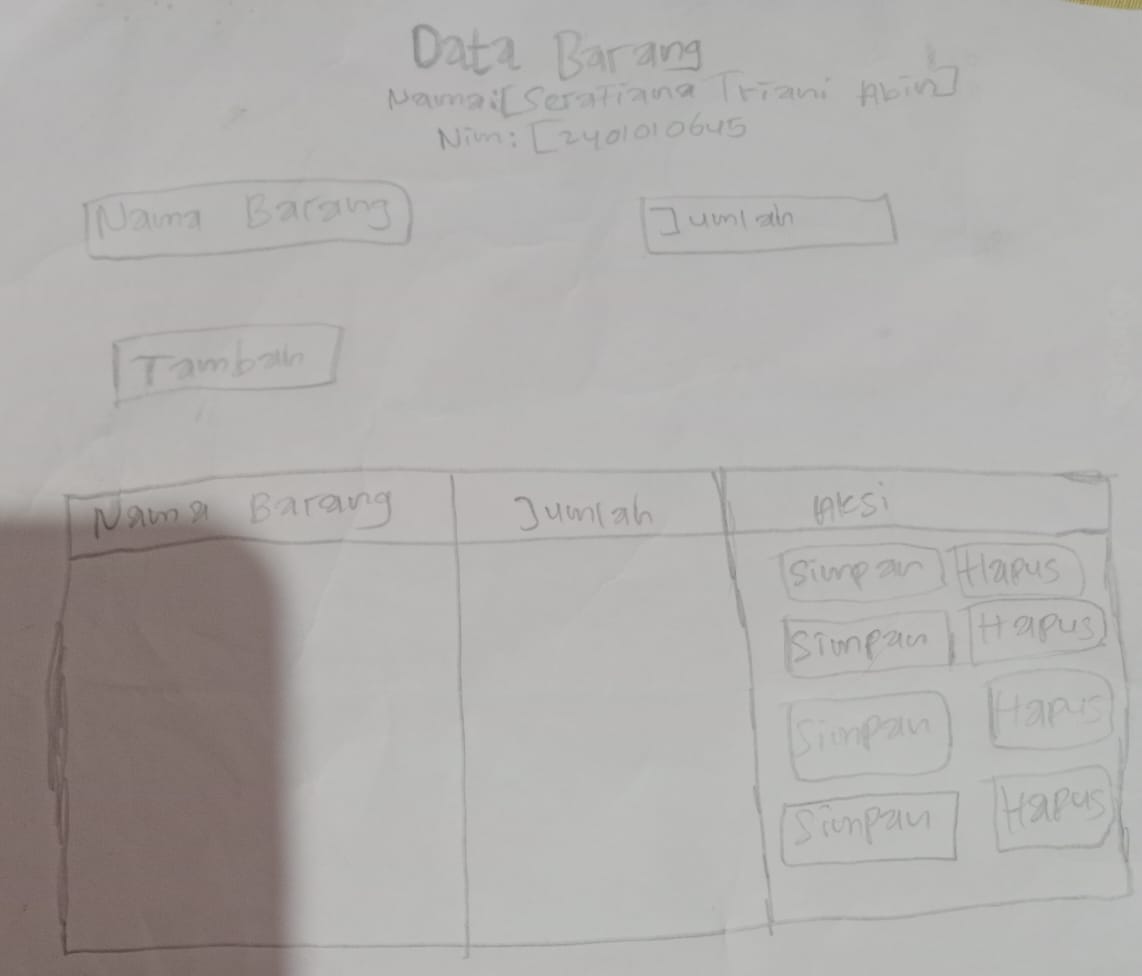 Data Barang
Nama:[Serafiana Triani Abin]
Nim: [2401010645
Nama Barang Jumlah
Tambah
Nama Barang Jumlah Aksi
Simpan Hapus
Simpan Hapus
Simpan Hapus
Simpan Hapus